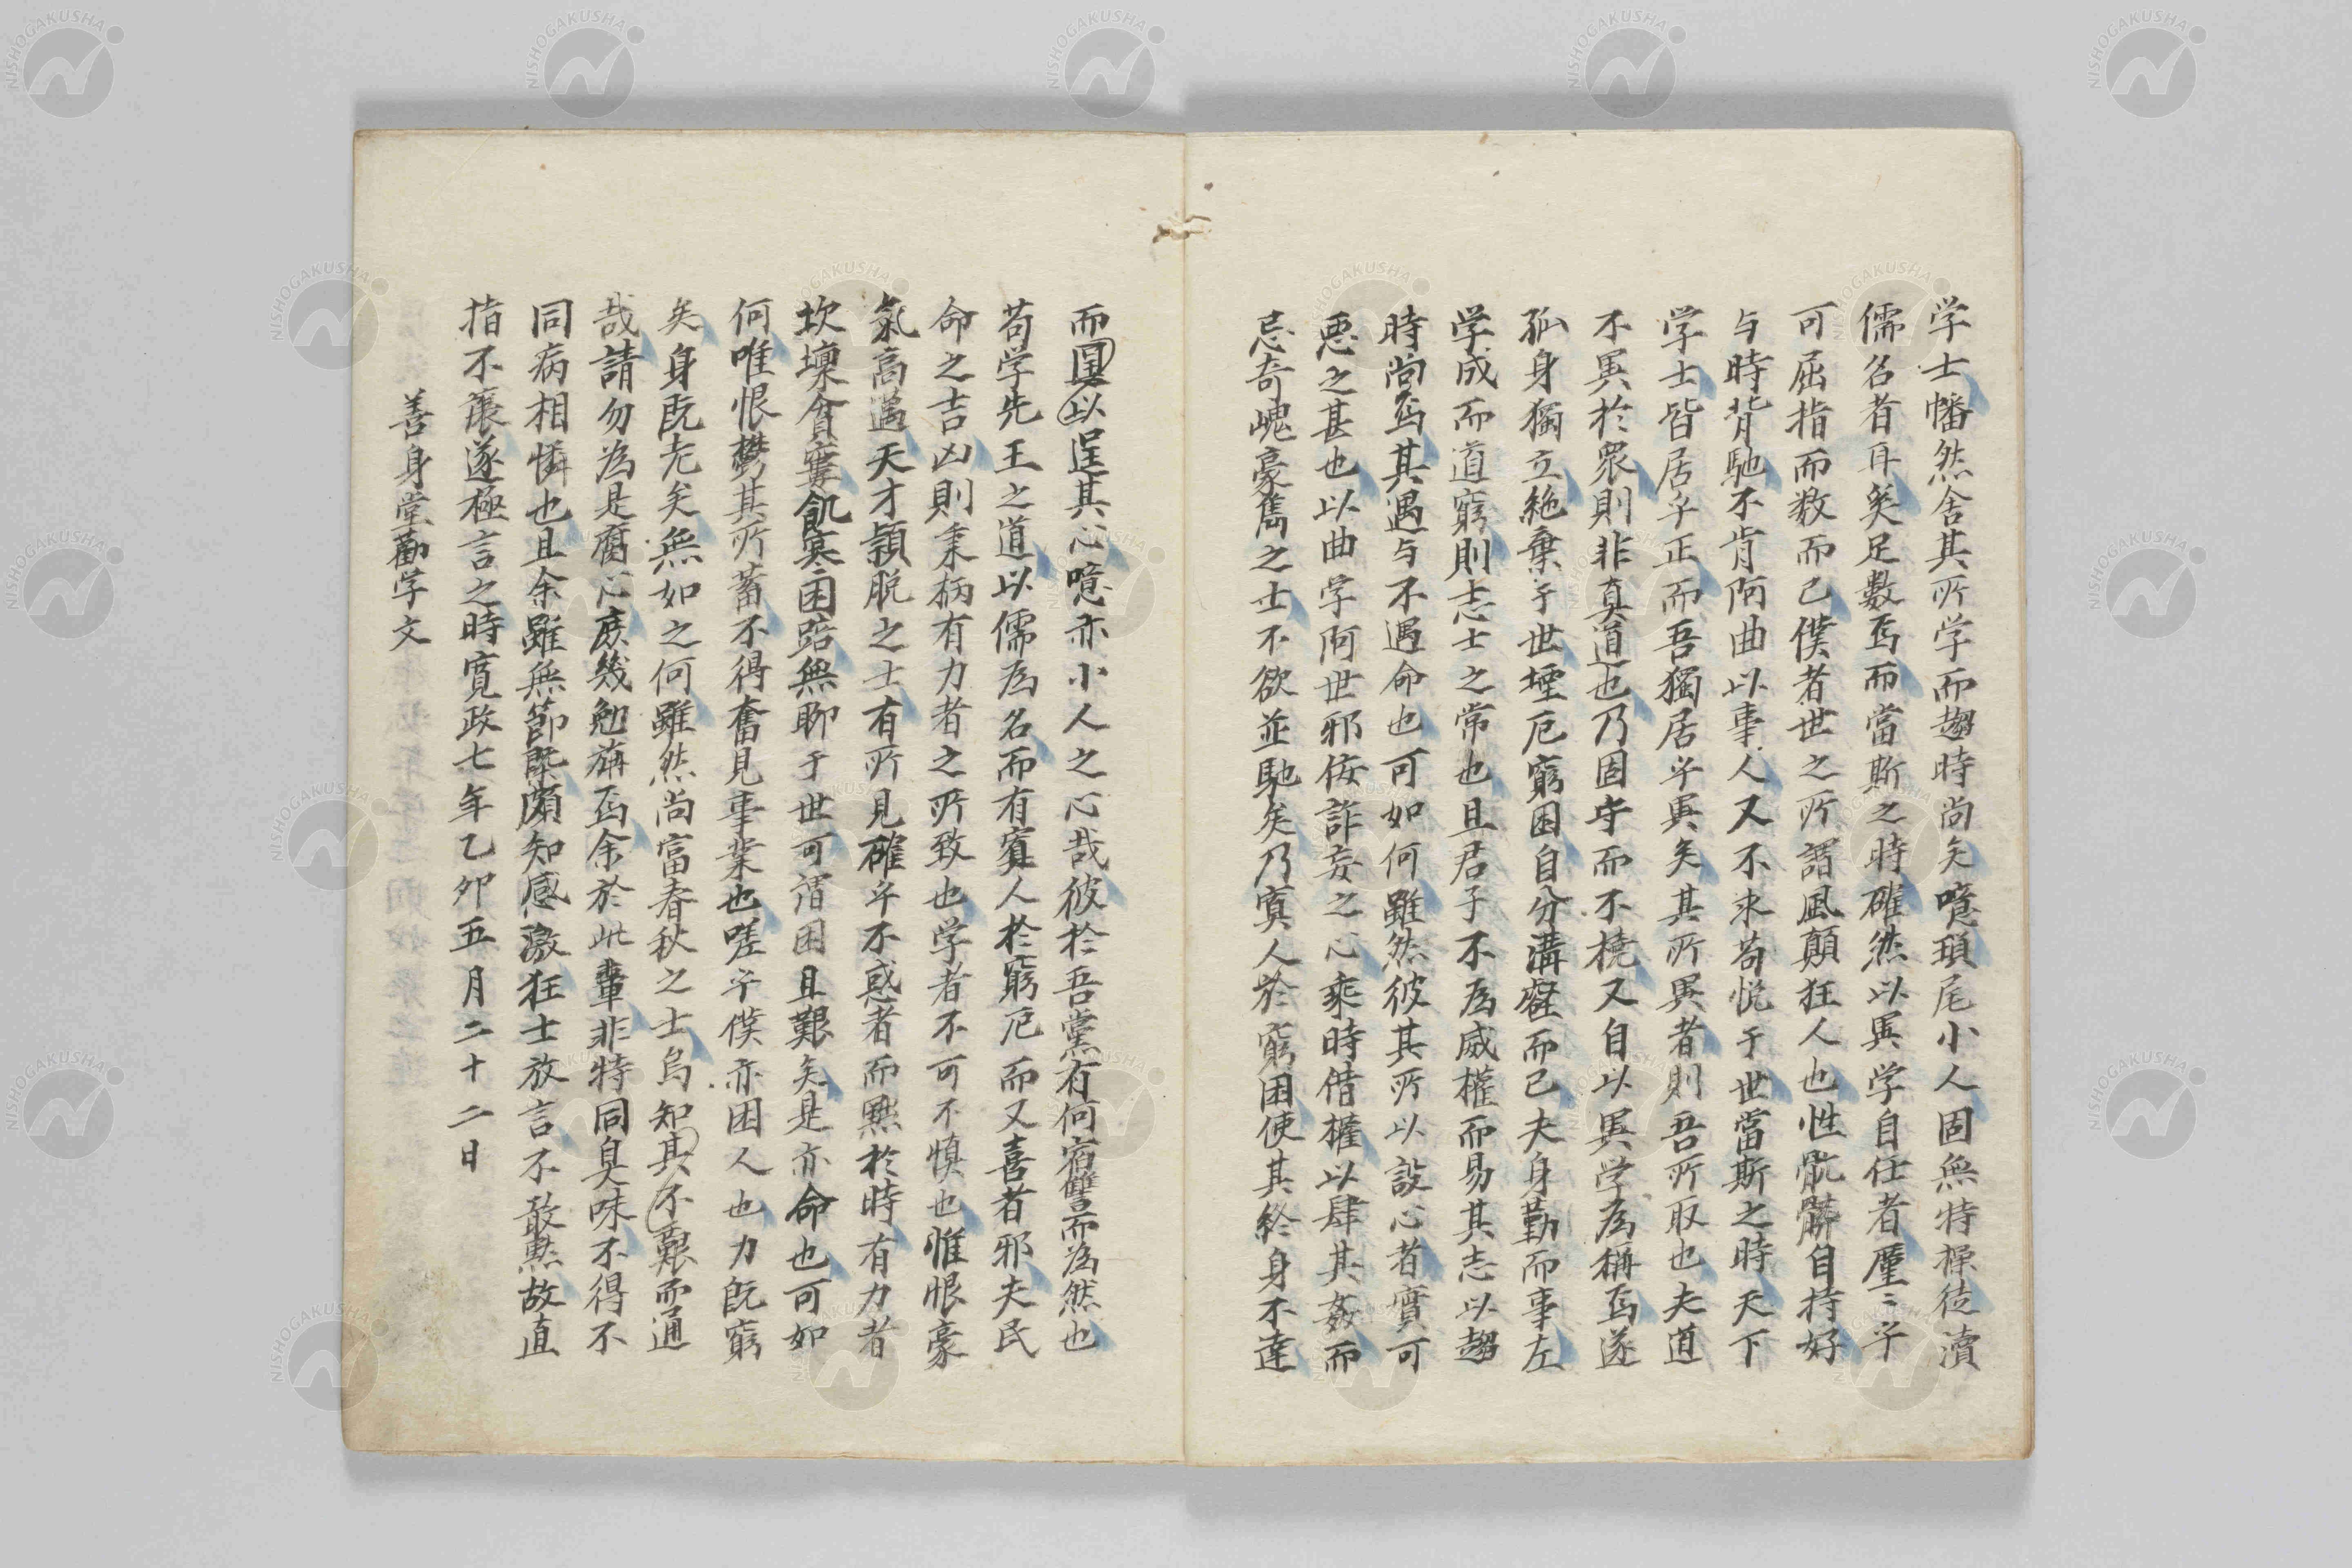 学士幡然舎其所学而趨時尚矣噫瑣尾小人固無特操徒瀆
儒名者耳矣足数焉而當斯之時確然以異学自任者厪〻乎
可屈指而数而已僕者世之所謂風顛狂人也性骯髒自持好
与時背馳不肯阿曲以事人又不求苟悦于世當斯之時天下
学士皆居乎正而吾獨居乎異矣其所異者則吾所取也夫道
不異於衆則非真道也乃固守而不撓又自以異学為稱焉遂
孤身獨立絶棄于世堙厄窮困自分溝壑而已夫身勤而事左
学成而道窮則志士之常也且君子不為威權而易其志以趨
時尚焉其遇与不遇命也可如何雖然彼其所以設心者實可
悪之甚也以曲学阿世邪佞詐妄之心乘時借權以肆其姦而
忌奇嵬豪雋之士不欲並馳矣乃寘人於窮困使其終身不達
而因以逞其心噫亦小人之心哉彼於吾黨有何宿讐而為然也
苟学先王之道以儒為名而有寘人於窮厄而又喜者邪夫民
命之吉凶則秉柄有力者之所致也学者不可不慎也惟恨豪
氣高邁天才穎脱之士有所見確乎不惑者而黙於時有力者
坎壈貧窶飢寒困踣無聊于世可謂困且艱矣是亦命也可如
何唯恨鬱其所蓄不得奮見事業也嗟乎僕亦困人也力既窮
矣身既老矣無如之何雖然尚富春秋之士烏知其不艱而通
哉請勿為是腐心庶幾勉旃焉余於此輩非特同臭味不得不
同病相憐也且余雖無節槩頗知感激狂士放言不敢黙故直
指不譲遂極言之時寛政七年乙卯五月二十二日
善身堂勸学文